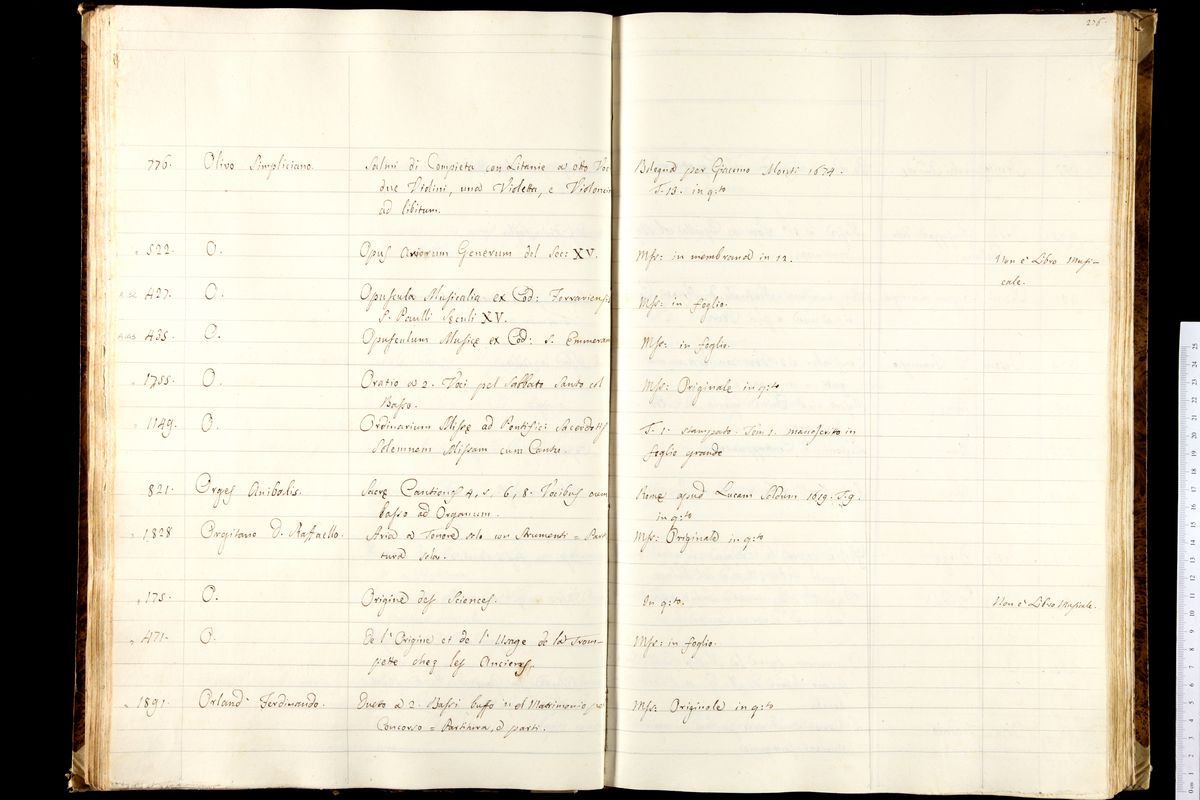 236.
776. Olivo Simpliciano. Salmi di Compieta con Litanie a otto Voc Bologna per Giacomo Monti 1674.
due Violini, una Violetta, e Violonci T. 13. in q:to
ad libitum.
522. O. Opus variorum Generum del Sec: XV. Mss: in membrana in 12. Non è Libro Musi-
cale.
427. O. Opuscula Musicalia ex Cod: Ferrariensis Mss: in foglio.
S. Paulli Seculi XV.
435. O. Opusculum Musicę ex Cod: S. Emmeram Mss: in foglio.
1755. O. Oratio a 2. Voci pel Sabbato Santo col Mss: Originale in q:to
Basso.
1149. O. Ordinarium Missę ad Pontific: Sacerdotes T. 1. stampato. Tom 1. manoscritto in
Solemnem Missam cum Cantu. foglio grande
821. Orges Anibalis. Sacrę Cantiones 4, 5, 6, 8. Vocibus cum Romę apud Lucam Soldum 1619. T. 9.
basso ad Organum. in q:to
1828 Orgitano D. Raffaello. Aria a Tenore solo con Strumenti = Par Mss: Originale in q:to
titura sola.
175. O. Origine des Sciences. In q:to. Non è Libro Musicale.
471. O. De l'Origine et de l'Usage de la Trom- Mss: in foglio.
pette chez les Anciens.
1891. Orlandi Ferdinando. Duetto a 2. Bassi buffo nel Matrimonio per Mss: Originale in q:to
Concorso = Partitura, e parti.